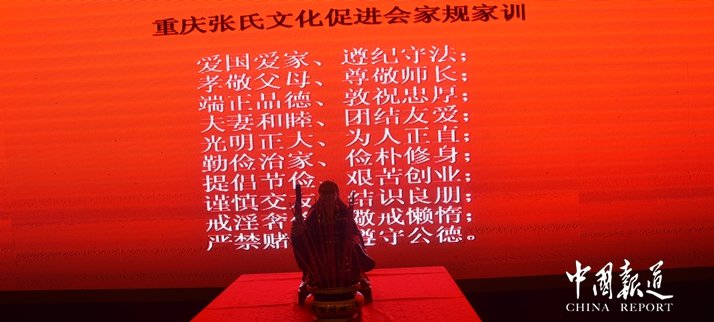 重庆张氏文化促进会家规家训
爱国爱家、遵纪守法；
孝敬父母、尊敬师长；
端正品德、敦祝忠厚；
夫妻和睦、团结友爱；
光明正大、为人正直；
勤俭治家、俭朴修身；
提倡节俭、艰苦创业；
谨慎交 结识良朋；
戒淫奢 敬戒懒惰；
严禁赌 遵守公德。
中国报道
CHINA REPORT